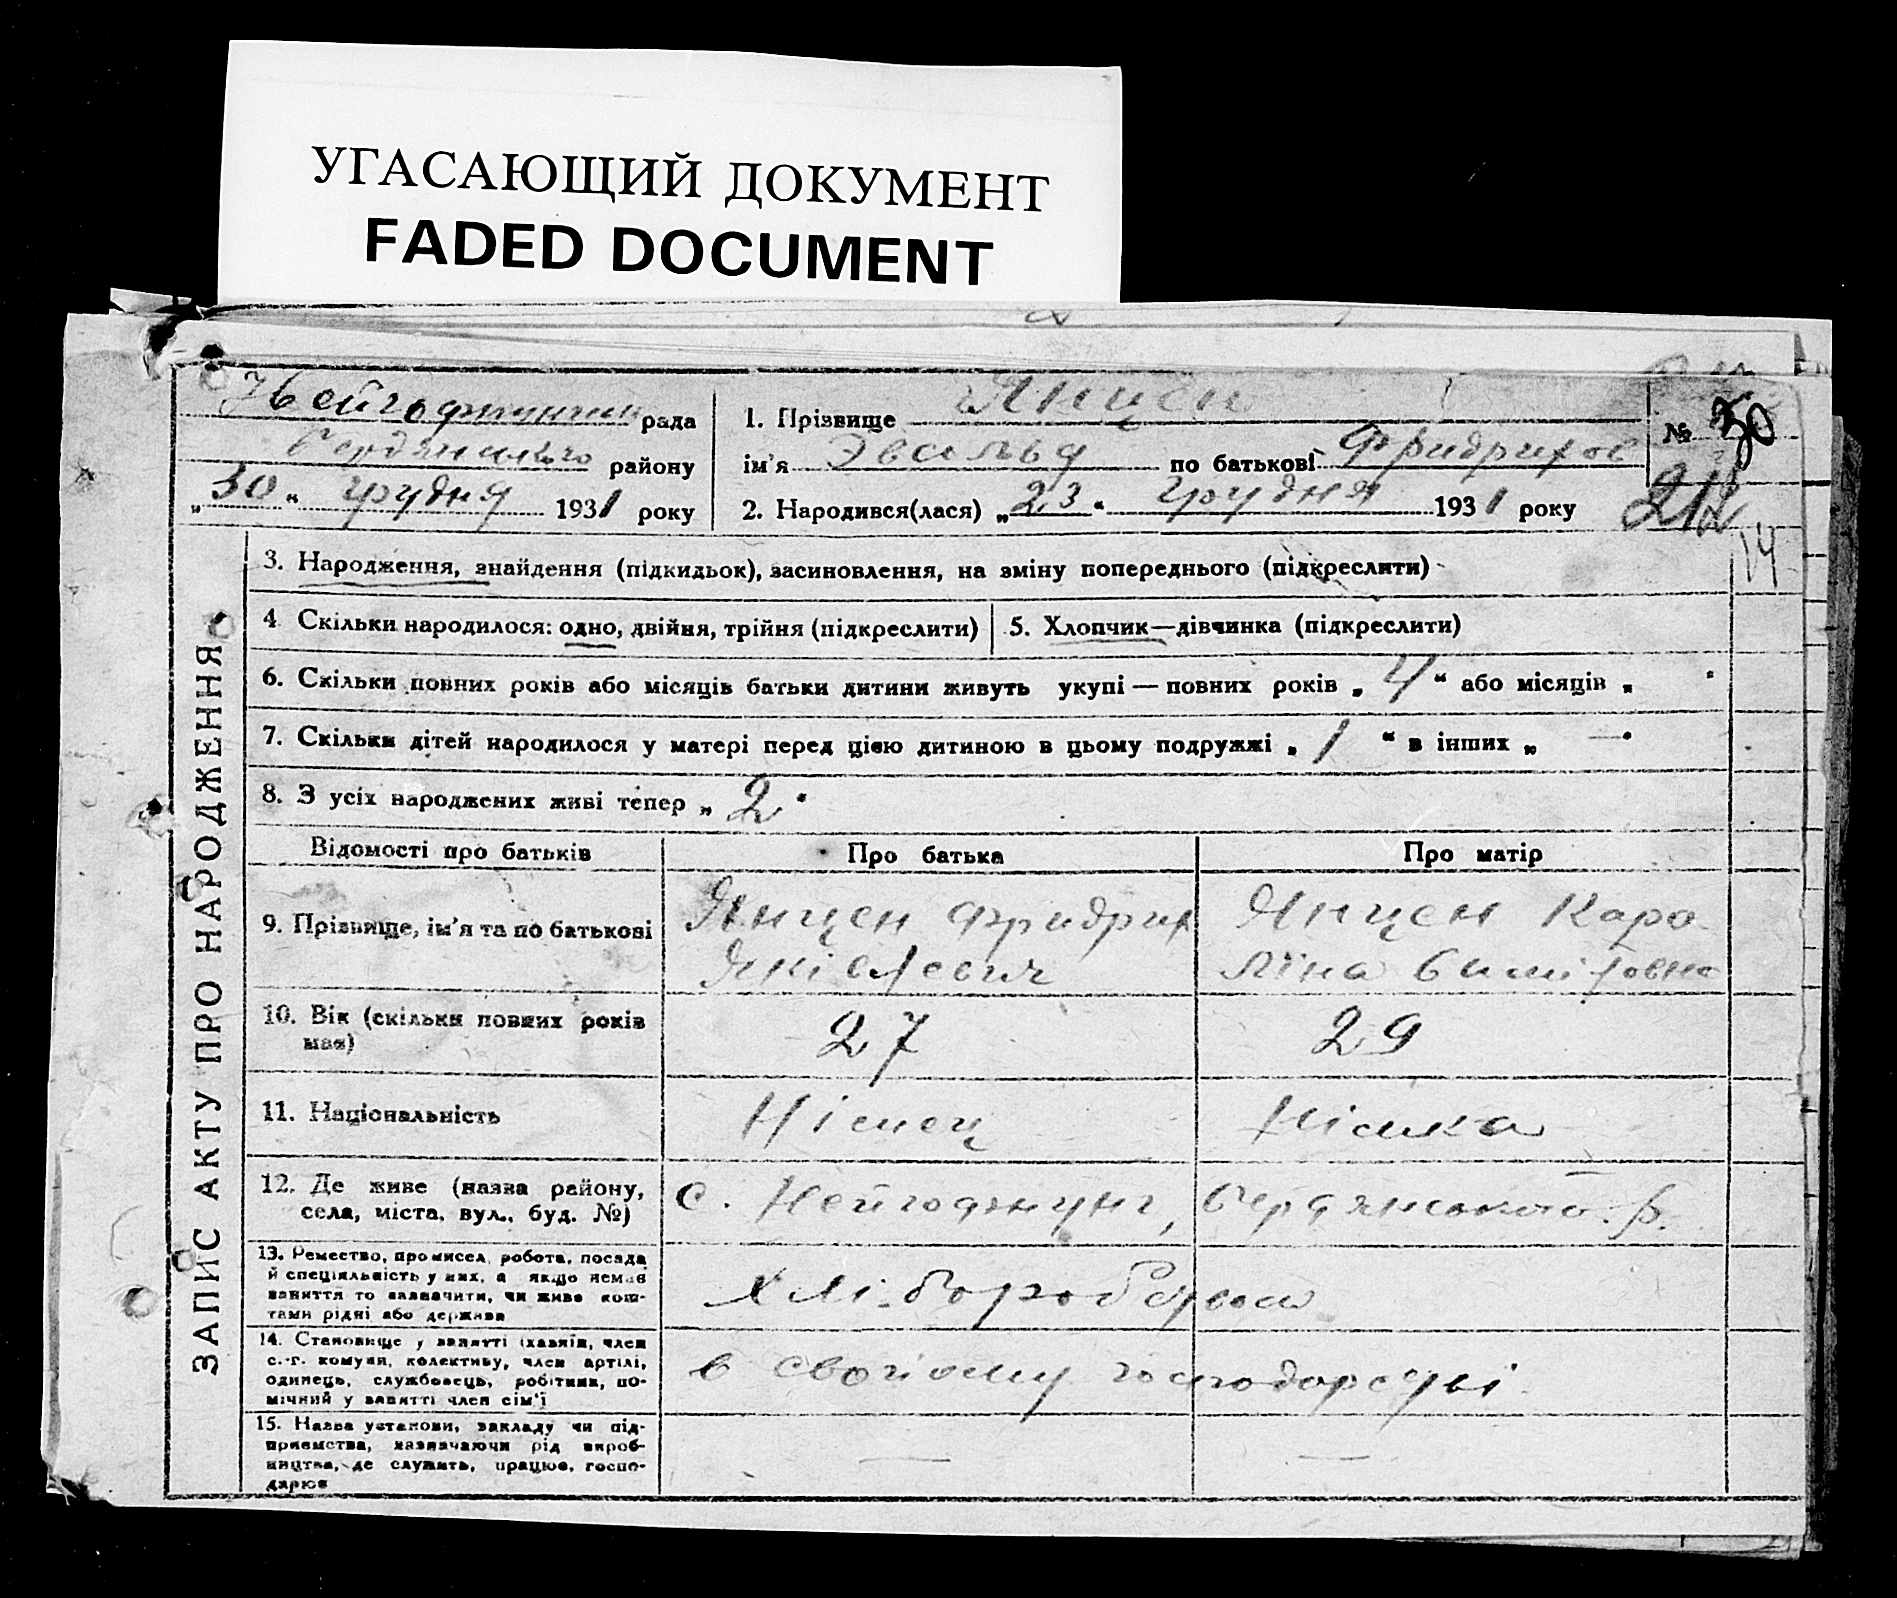 УГАСАЮЩИЙ ДОКУМЕНТ
FADED DOCUMENT
рада
Бердянського району
„30“ грудня 1931 року
1. Прізвище Янцен
ім'я Эвальд по батькові Фридрихов
2. Народився(лася) „23“ грудня 1931 року
№ 30
212
14
ЗАПИС АКТУ ПРО НАРОДЖЕННЯ
3. Народження, знайдення (підкидьок), засиновлення, на зміну попереднього (підкреслити)
4 Скільки народилося: одно, двійня, трійня (підкреслити)
5. Хлопчик—дівчинка (підкреслити)
6. Скільки повних років або місяців батьки дитини живуть укупі — повних років „4“ або місяців „
7. Скільки дітей народилося у матері перед цією дитиною в цьому подружжі „1“ в інших „—“
8. З усіх народжених живі тепер „2“
Відомості про батьків
Про батька
Про матір
9. Прізвище, ім'я та по батькові
Янцен Фридрих
Яківлевич
Янцен Каро
ліна
10. Вік (скільки повних років
має)
27
29
11. Національність
Німець
Німка
12. Де живе (назва району,
села, міста, вул., буд. №)
с. Нейгофнунг, Бердянського р.
13. Ремество, промисел, робота, посада
й спеціяльність у них, а якщо немає
заняття то зазначити, чи живе кош-
тами рідні або держави
хлі-боробство
14. Становище у занятті (хазяїн, член
с.-г. комуни, колективу, член артілі,
одинець, службовець, робітник, по-
мічний у занятті член сім'ї
в своїому господарстві
15. Назва установи, закладу чи під-
приємства, зазначаючи рід вироб-
ництва, де служить, працює, госпо-
дарює
—
—